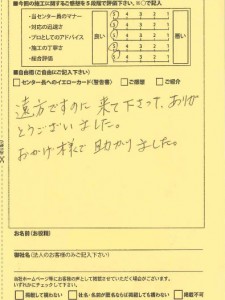 ■今回の施工に関するご感想を5段階で評価下さい。※○で記入
・当センター長のマナー 5 4 3 2 1
・対応の迅速さ 5 4 3 2 1
・プロとしてのアドバイス 5 4 3 2 1
・施工の丁寧さ 5 4 3 2 1
・総合評価 5 4 3 2 1
良い
悪い
■自由欄(ご自由にご記入下さい)
□ センター長へのイエローカード(警告書) □ ご感想 □ ご紹介
遠方ですのに来て下さって、ありが
とうございました。
おかげ様で助かりました。
お名前(お役職)
御社名(法人のお客様のみご記入下さい)
当社ホームページ等にお客様の声として掲載させていただく場合がございます。
いずれかにチェックして下さい。
□ 掲載して構わない □ 社名・名前が匿名ならば掲載しても構わない □ 掲載不可